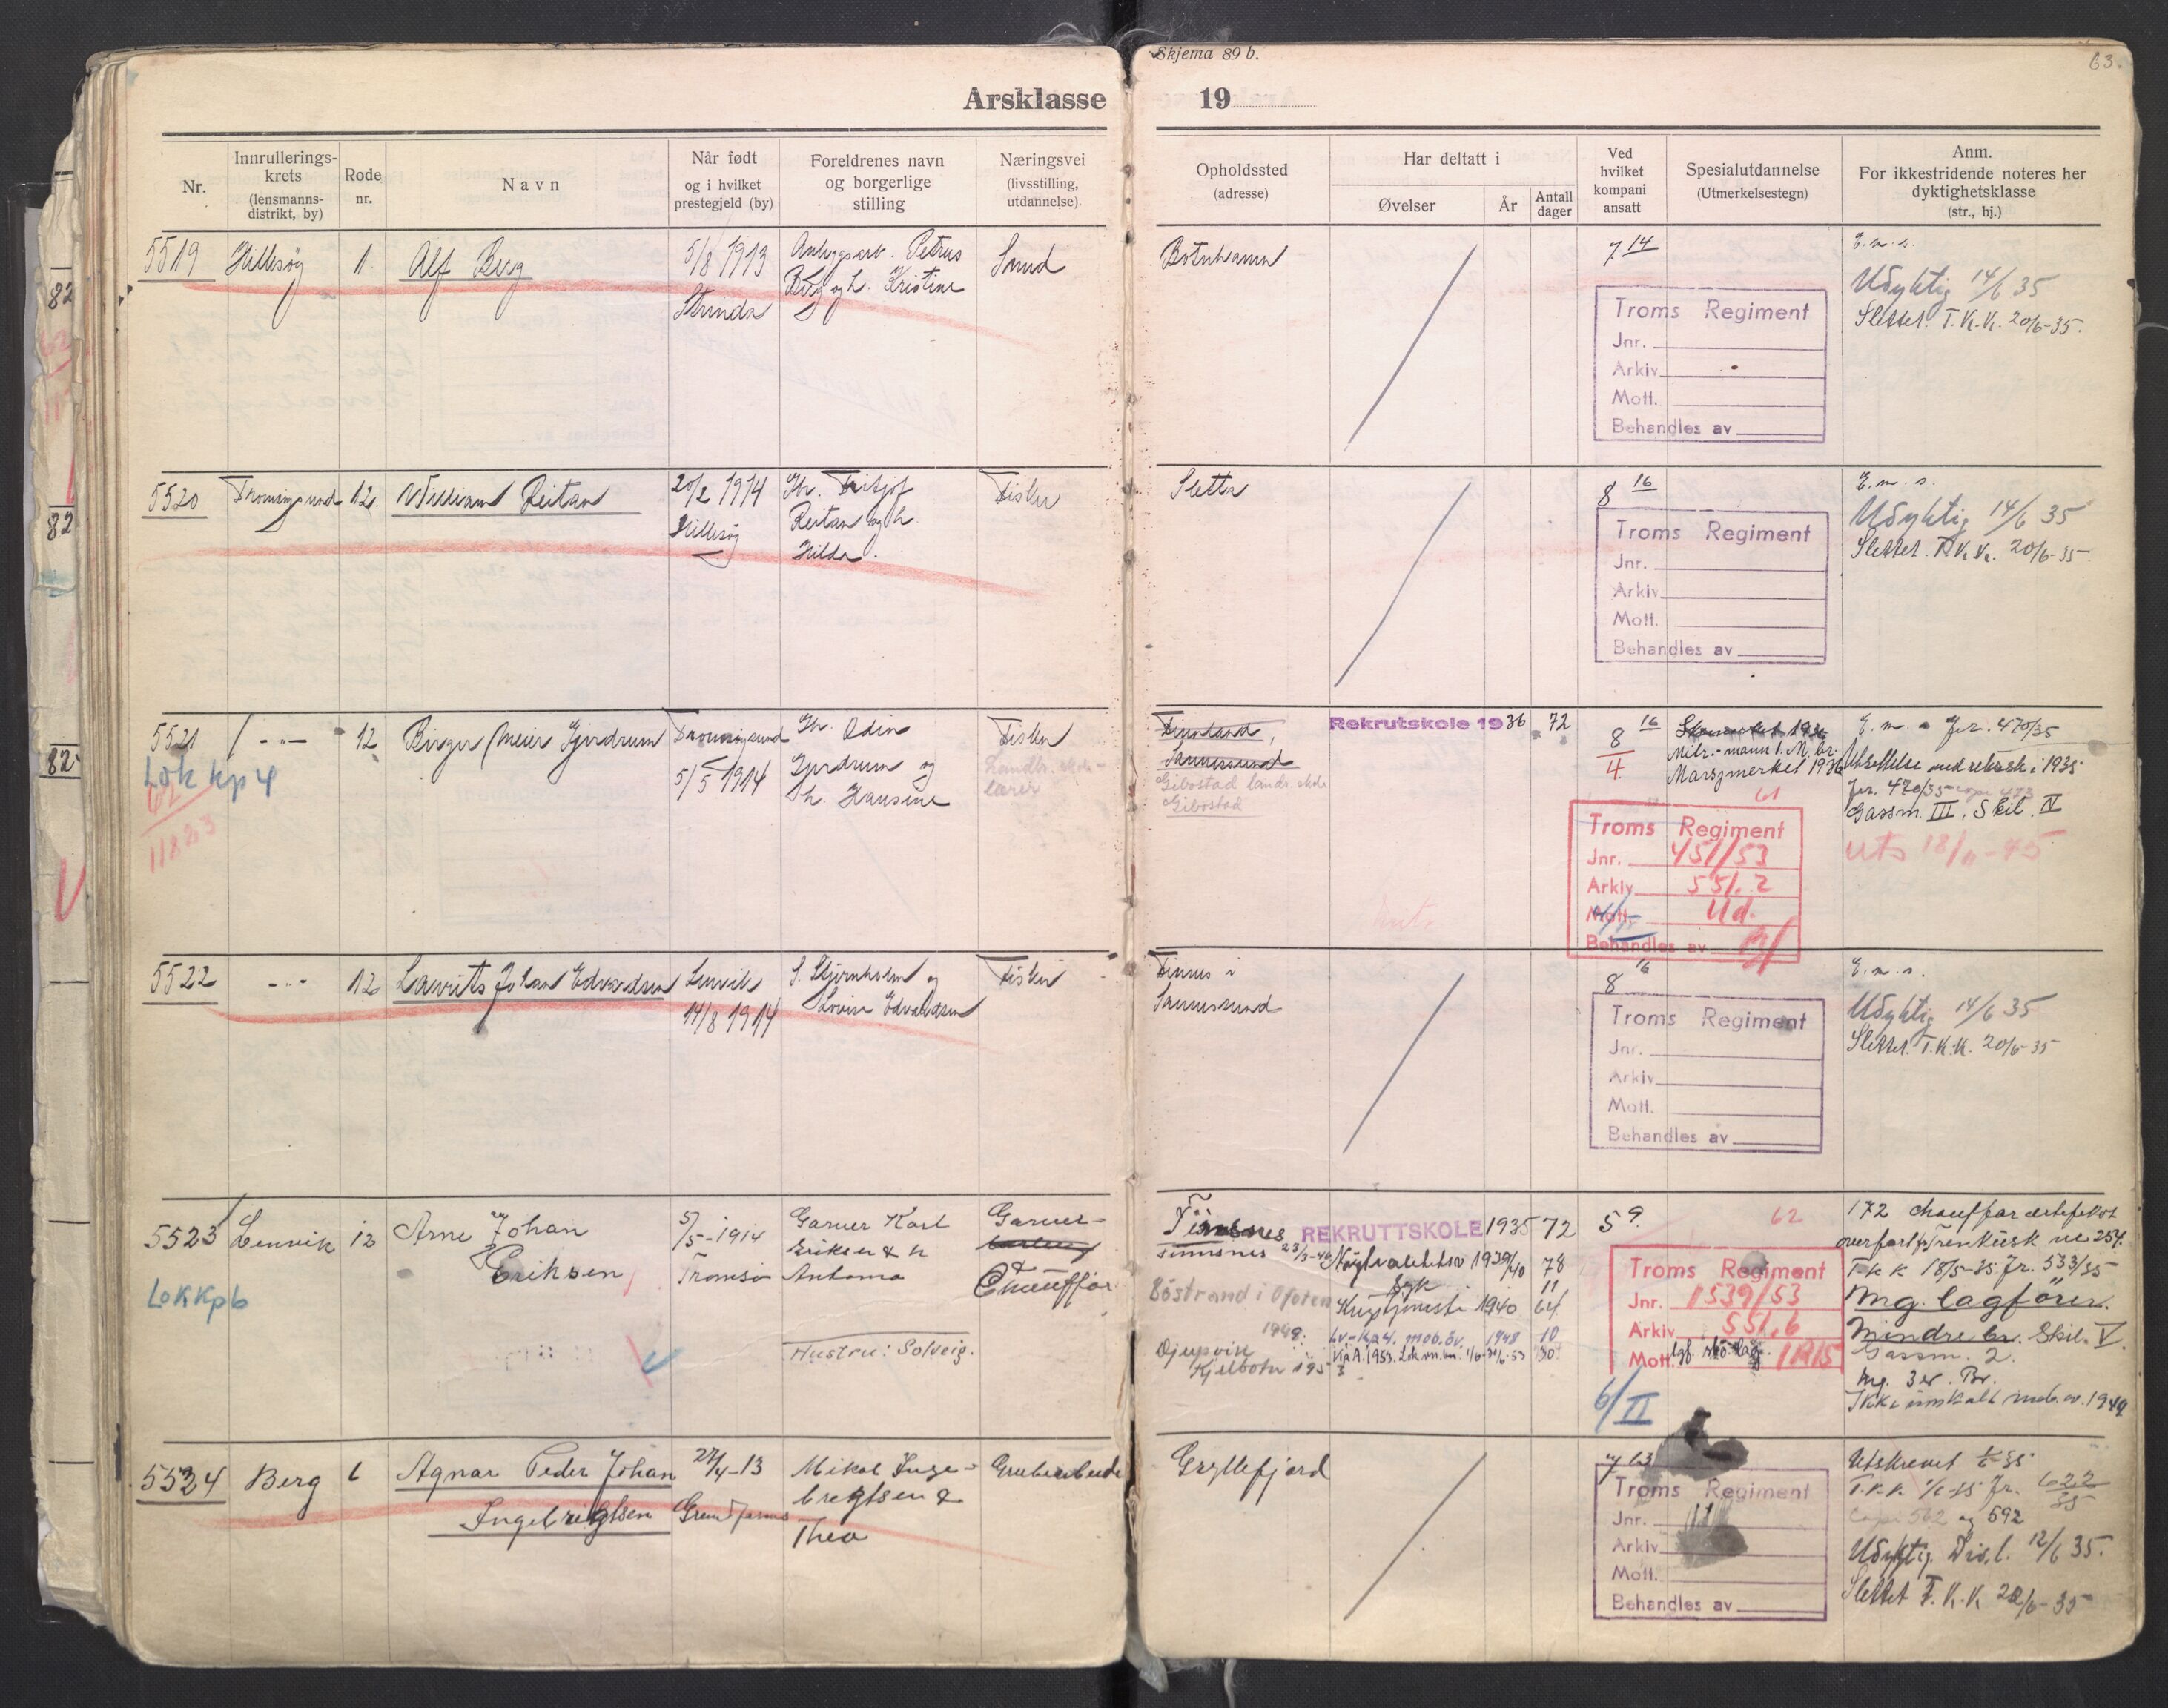 Skjema 89 b.
63.
Årsklasse 19
Nr.
Innrullerings-
krets
(lensmanns-
distrikt, by)
Rode
nr.
Navn
Når født
og i hvilket
prestegjeld (by)
Foreldrenes navn
og borgerlige
stilling
Næringsvei
(livsstilling,
utdannelse)
Opholdssted
(adresse)
Har deltatt i
Øvelser
År
Antall
dager
Ved
hvilket
kompani
ansatt
Spesialutdannelse
(Utmerkelsestegn)
Anm.
For ikkestridende noteres her
dyktighetsklasse
(str., hj.)
5519 Hillesøy 1 Alf Berg
5/8 1913
Strinda
Anleggsarb. Petrus
Berg og h. Kristine
Smed
Botnhamn
7 14
Troms Regiment
Jnr.
Arkiv
Mott.
Behandles av
E.m.s.
Udyktig 14/6 35
Slettet T.K.K. 20/6-35.
5520 Tromsøysund 12 William Reitan
20/2 1914
Hillesøy
Fhv. Fritjof
Reitan og h.
Hilda.
Fisker
Sletta
8 16
Troms Regiment
Jnr.
Arkiv
Mott.
Behandles av
E.m.s.
Udyktig 14/6 35
Slettet T.K.K. 20/6-35
5521 -"- 12 Birger Meier Gjerdrum
Lok Kp 4
62
11823
Tromsøysund
5/5 1914
Odin
Gjerdrum og
h. Hansine
Fisker
Landbr. skole-
lærer
Gibostad landb. skole
Gibostad
Rekrutskole 1936 72
8 16
4
Mitr.-mann
Marsjmerket 1936
61
Troms Regiment
Jnr. 451/53
Arkiv 551.2
Mott. Ud.
Behandles av
E.m.s. Jnr. 470/35
Utsettelse med rekrsk. i 1935
Jnr. 470/35
Gassm. III, Skil. IV
uts 18/11-45
5522 -"- 12 Laurits Johan Edvardsen
Lenvik
14/8 1914
S. Stjernholm og
Lovise Edvardsen
Fisker
Finnes i
Sannessund
8 16
Troms Regiment
Jnr.
Arkiv
Mott.
Behandles av
E.m.s.
Udyktig 14/6 35
Slettet T.K.K. 20/6-35
5523 Lenvik 12 Arne Johan
Eriksen
Lok Kp 6
5/5-1914
Tromsø
Garver Karl
Eriksen & h
Antona
Hustru: Solveig.
Garver-
Chauffør
Finnsnes 23/3-46
Bøstrand i Ofoten
1949.
Djupvik
Kjelbotn 1953
REKRUTTSKOLE 1935 72
Nøytralitetsv 1939/40 78
Syk 11
Krigstjeneste 1940 64
Lv-Kp 4. mob.öv. 1948 10
59
62
Troms Regiment
Jnr. 1539/53
Arkiv 551.6
Mott. 1215
6/II
172
T K K 18/5-35 Jr. 533/35
Mg. lagfører.
Mindre br. Skil. V.
Gassm. 2.
Mg. 3er. Br.
Ikke innkalt mob.øv. 1949
5524 Berg 6 Agnar Peder Johan
Ingebrigtsen
27/4-13
Mikal Inge-
brigtsen &
Thea
Grubearbeide
Gryllefjord
Troms Regiment
Jnr.
Arkiv
Mott.
Behandles av
Utskrevet
T.K.K. 1/6-35 Jr. 622/35
Copi 562 og 592
Udyktig Div.l. 12/6 35.
Slettet T.K.K. 20/6-35
82
82
82